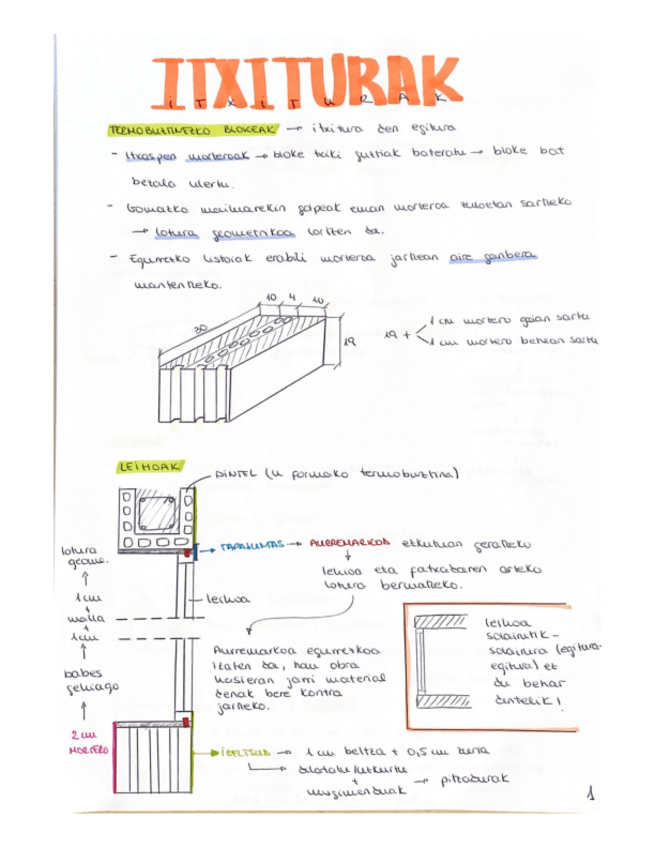 ITXITURAK
ITXITURAK
TERMOBUZTINEZKO BLOKEAK → itxitura den egitura
- Itxaspen morteroak → bloke txiki guztiak bateratu → bloke bat
bezala ulertu.
- Gomazko mailuarekin golpeak eman morteroa zuloetan sartzeko
→ lotura geometrikoa lortzen da.
- Egurrezko listoiak erabili morteroa jartzean aire ganbera
mantentzeko.
10 4 10
30
19
19 +
1 cm mortero goian sartu
1 cm mortero behean sartu
LEIHOAK
DINTEL (u formako termobuztina)
lotura
geome.
↑
1 cm
+
malla
+
1 cm
↑
babes
gehiago
↑
2 cm
MORTERO
→ TAPAJUNTAS → AURREMARKOA ezkutuan geratzeko
↓
leihoa eta fatxadaren arteko
lotura bermatzeko.
leihoa
Aurremarkoa egurrezkoa
izaten da, hau obra
hasieran jarri material
denak bere kontra
jartzeko.
leihoa
solairutik-
solairura (egitura-
egitura) ez
du behar
dintelik!
→ IGELTSUA → 1 cm beltza + 0,5 cm zuria
dilatatu/uzkurtu
+
mugimenduak
→ pitzadurak
1